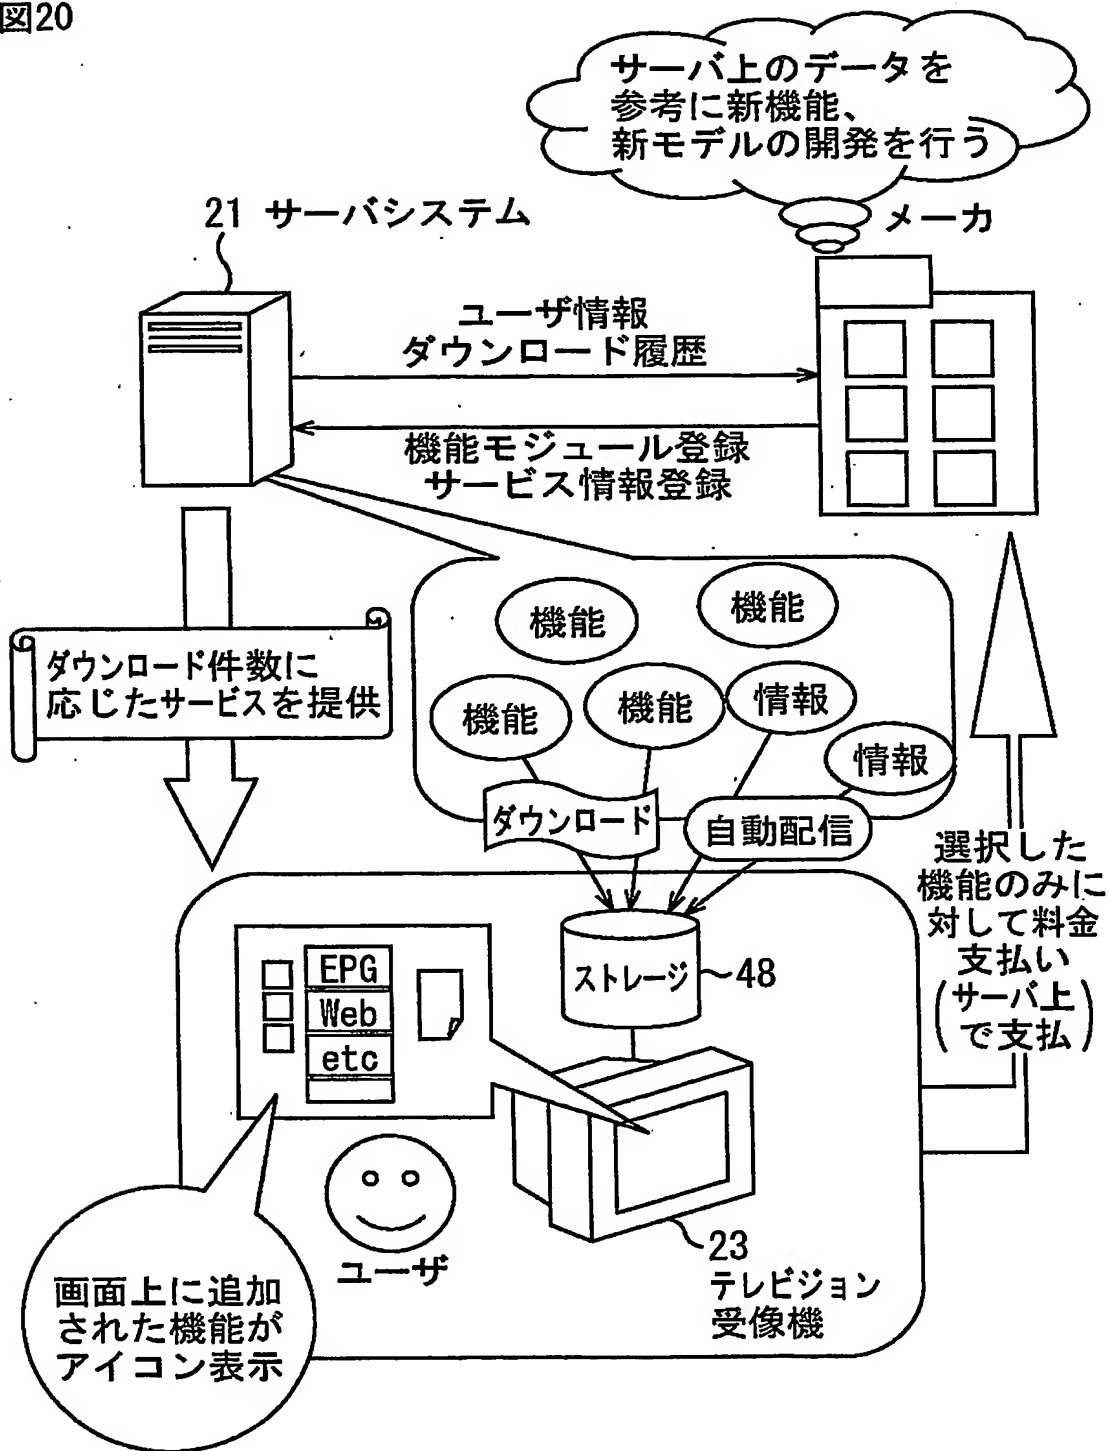 図20
サーバ上のデータを
参考に新機能、
新モデルの開発を行う
21 サーバシステム
メーカ
ユーザ情報
ダウンロード履歴
機能モジュール登録
サービス情報登録
機能
機能
ダウンロード件数に
応じたサービスを提供
機能
機能
情報
情報
ダウンロード
自動配信
選択した
機能のみに
対して料金
支払い
(サーバ上
で支払)
ストレージ
48
EPG
Web
etc
ユーザ
23
テレビジョン
受像機
画面上に追加
された機能が
アイコン表示